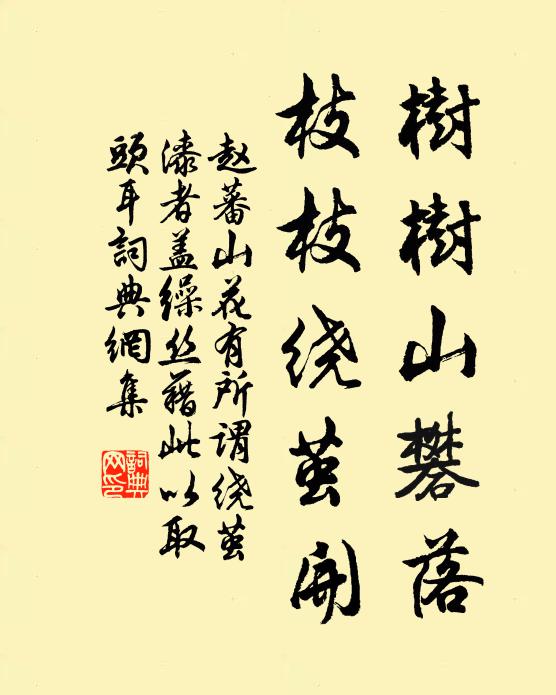 樹樹山礬落
枝枝绕茧開
赵蕃山花有所謂绕茧
漆者盖缲丝藉此以取
頭耳詞典網集
詞典
网印